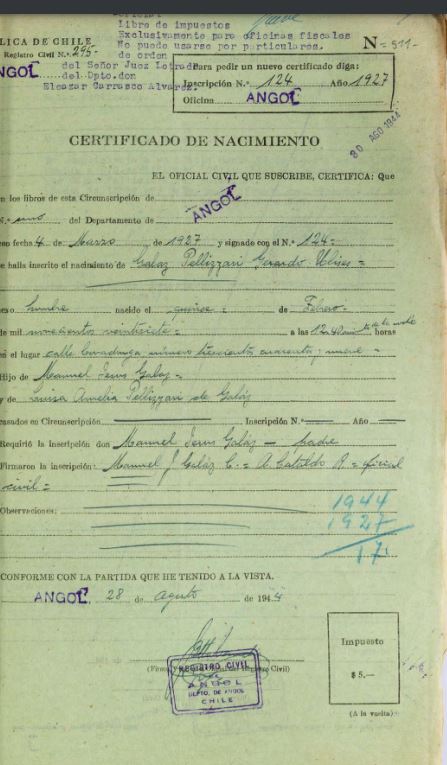 Oficial
Libre de impuestos
Exclusivamente para oficinas fiscales
No puede usarse por particulares.
LICA DE CHILE
Registro Civil N.º 295- de orden
ANGOL del Señor Juez Letrado
del Dpto. don
Eleazar Carrasco Alvarez.
N=511-
Para pedir un nuevo certificado diga:
Inscripción N.º 124 Año 1927
Oficina ANGOL
30 AGO 1944
CERTIFICADO DE NACIMIENTO
EL OFICIAL CIVIL QUE SUSCRIBE, CERTIFICA: Que
en los libros de esta Circunscripción de
N.º uno del Departamento de ANGOL
con fecha 4 de Marzo de 1927 y signado con el N.º 124=
se halla inscrito el nacimiento de Galaz Pellizzari Gerardo Ulises =
sexo hombre nacido el quince = de Febrero
de mil novecientos veintisiete = a las 12.40 horas
en el lugar calle número trescientos cuarenta y nueve
Hijo de Manuel Jesus Galaz =
y de Luisa Amelia Pellizzari de Galaz
casados en Circunscripción Inscripción N.º Año
Requirió la inscripción don Manuel Jesus Galaz — padre
Firmaron la inscripción: Manuel J Galaz C. = A. Cataldo R = oficial
civil =
Observaciones:
1944
1927
17
CONFORME CON LA PARTIDA QUE HE TENIDO A LA VISTA.
ANGOL 28 de agosto de 1944
REGISTRO CIVIL
ANGOL
DEPTO. DE ANGOL
CHILE
Impuesto
$ 5.—
(A la vuelta)